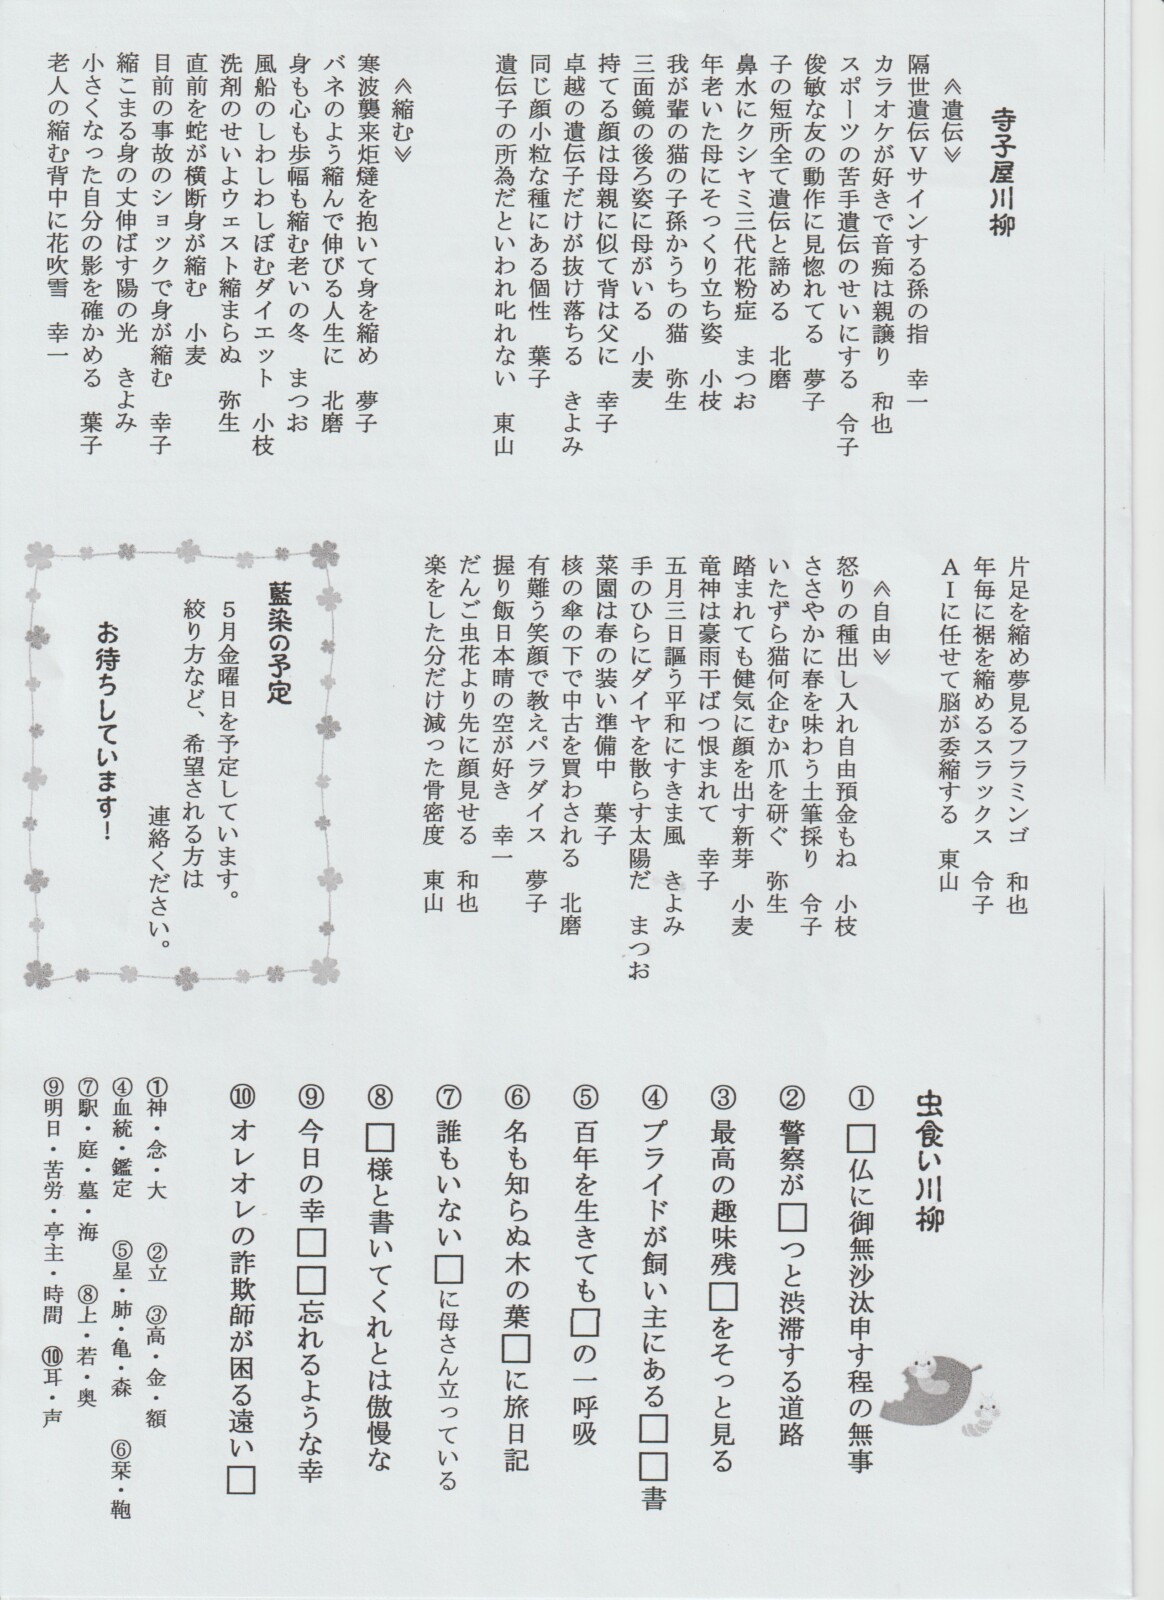 寺子屋川柳
≪遺伝≫
隔世遺伝Vサインする孫の指　幸一
カラオケが好きで音痴は親譲り　和也
スポーツの苦手遺伝のせいにする　令子
俊敏な友の動作に見惚れてる　夢子
子の短所全て遺伝と諦める　北磨
鼻水にクシャミ三代花粉症　まつお
年老いた母にそっくり立ち姿　小枝
我が輩の猫の子孫かうちの猫　弥生
三面鏡の後ろ姿に母がいる　小麦
持てる顔は母親に似て背は父に　幸子
卓越の遺伝子だけが抜け落ちる　きよみ
同じ顔小粒な種にある個性　葉子
遺伝子の所為だといわれ叱れない　東山
≪縮む≫
寒波襲来炬燵を抱いて身を縮め　夢子
バネのよう縮んで伸びる人生に　北磨
身も心も歩幅も縮む老いの冬　まつお
風船のしわしわしぼむダイエット　小枝
洗剤のせいよウェスト縮まらぬ　弥生
直前を蛇が横断身が縮む　小麦
目前の事故のショックで身が縮む　幸子
縮こまる身の丈伸ばす陽の光　きよみ
小さくなった自分の影を確かめる　葉子
老人の縮む背中に花吹雪　幸一
片足を縮め夢見るフラミンゴ　和也
年毎に裾を縮めるスラックス　令子
AIに任せて脳が委縮する　東山
≪自由≫
怒りの種出し入れ自由預金もね　小枝
ささやかに春を味わう土筆採り　令子
いたずら猫何企むか爪を研ぐ　弥生
踏まれても健気に顔を出す新芽　小麦
竜神は豪雨干ばつ恨まれて　幸子
五月三日謳う平和にすきま風　きよみ
手のひらにダイヤを散らす太陽だ　まつお
菜園は春の装い準備中　葉子
核の傘の下で中古を買わされる　北磨
有難う笑顔で教えパラダイス　夢子
握り飯日本晴の空が好き　幸一
だんご虫花より先に顔見せる　和也
楽をした分だけ減った骨密度　東山
藍染の予定
5月金曜日を予定しています。
絞り方など、希望される方は
連絡ください。
お待ちしています！
虫食い川柳
①□仏に御無沙汰申す程の無事
②警察が□つと渋滞する道路
③最高の趣味残□をそっと見る
④プライドが飼い主にある□□書
⑤百年を生きても□の一呼吸
⑥名も知らぬ木の葉□に旅日記
⑦誰もいない□に母さん立っている
⑧□様と書いてくれとは傲慢な
⑨今日の幸□□忘れるような幸
⑩オレオレの詐欺師が困る遠い□
①神・念・大　②立　③高・金・額
④血統・鑑定　⑤星・肺・亀・森　⑥栞・鞄
⑦駅・庭・墓・海　⑧上・若・奥
⑨明日・苦労・亭主・時間　⑩耳・声